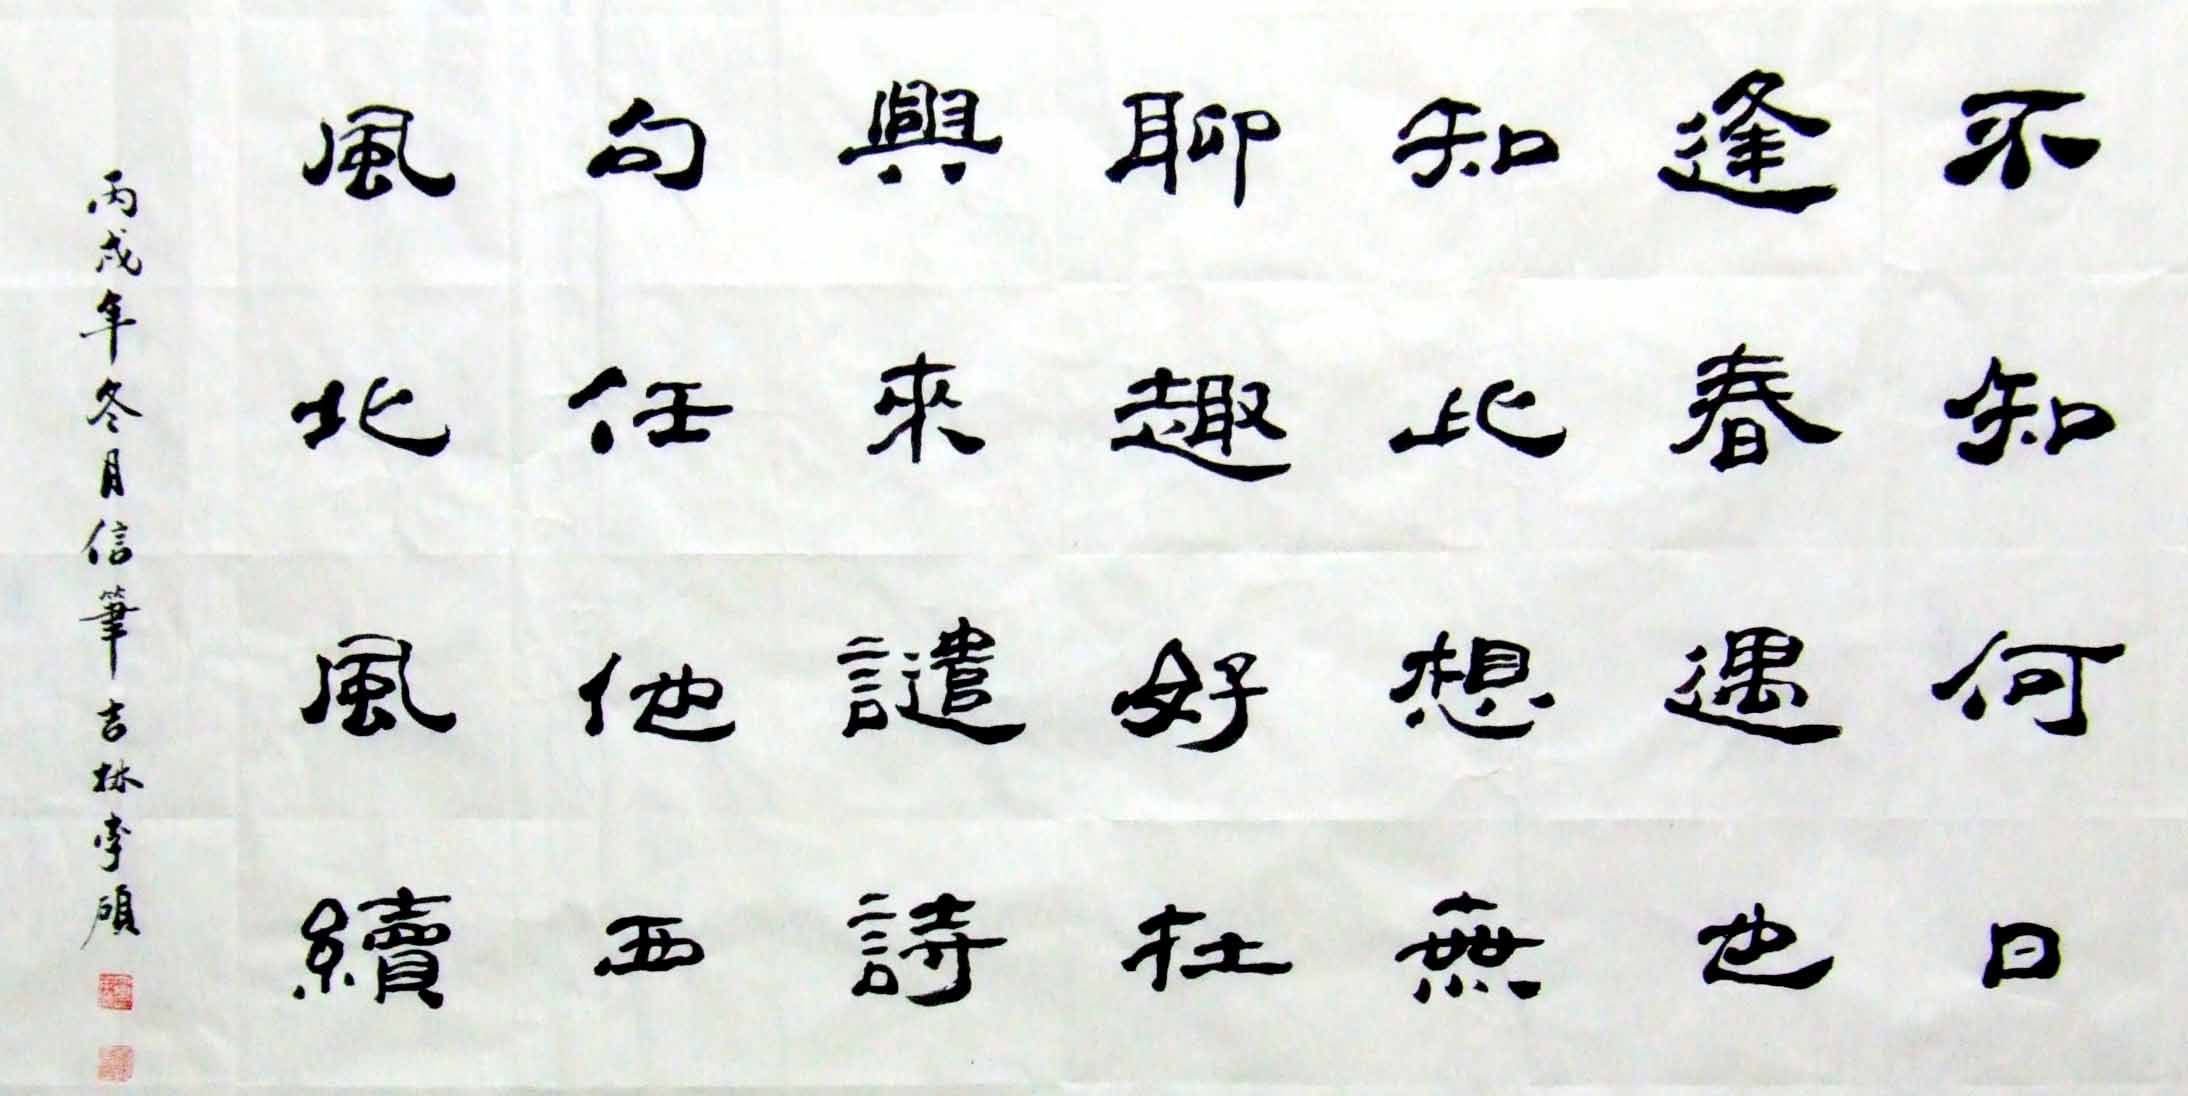 不知何日
逢春遇也
知此想無
聊趣好杜
興來譴詩
句任他西
風北風續
丙戌年冬月信筆吉林李碩